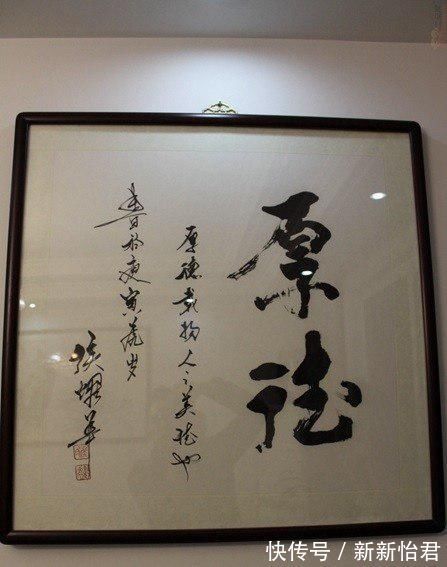 厚德
厚德载物人之美德也
書於庚寅虎岁
侯耀華
快传号 / 新新怡君